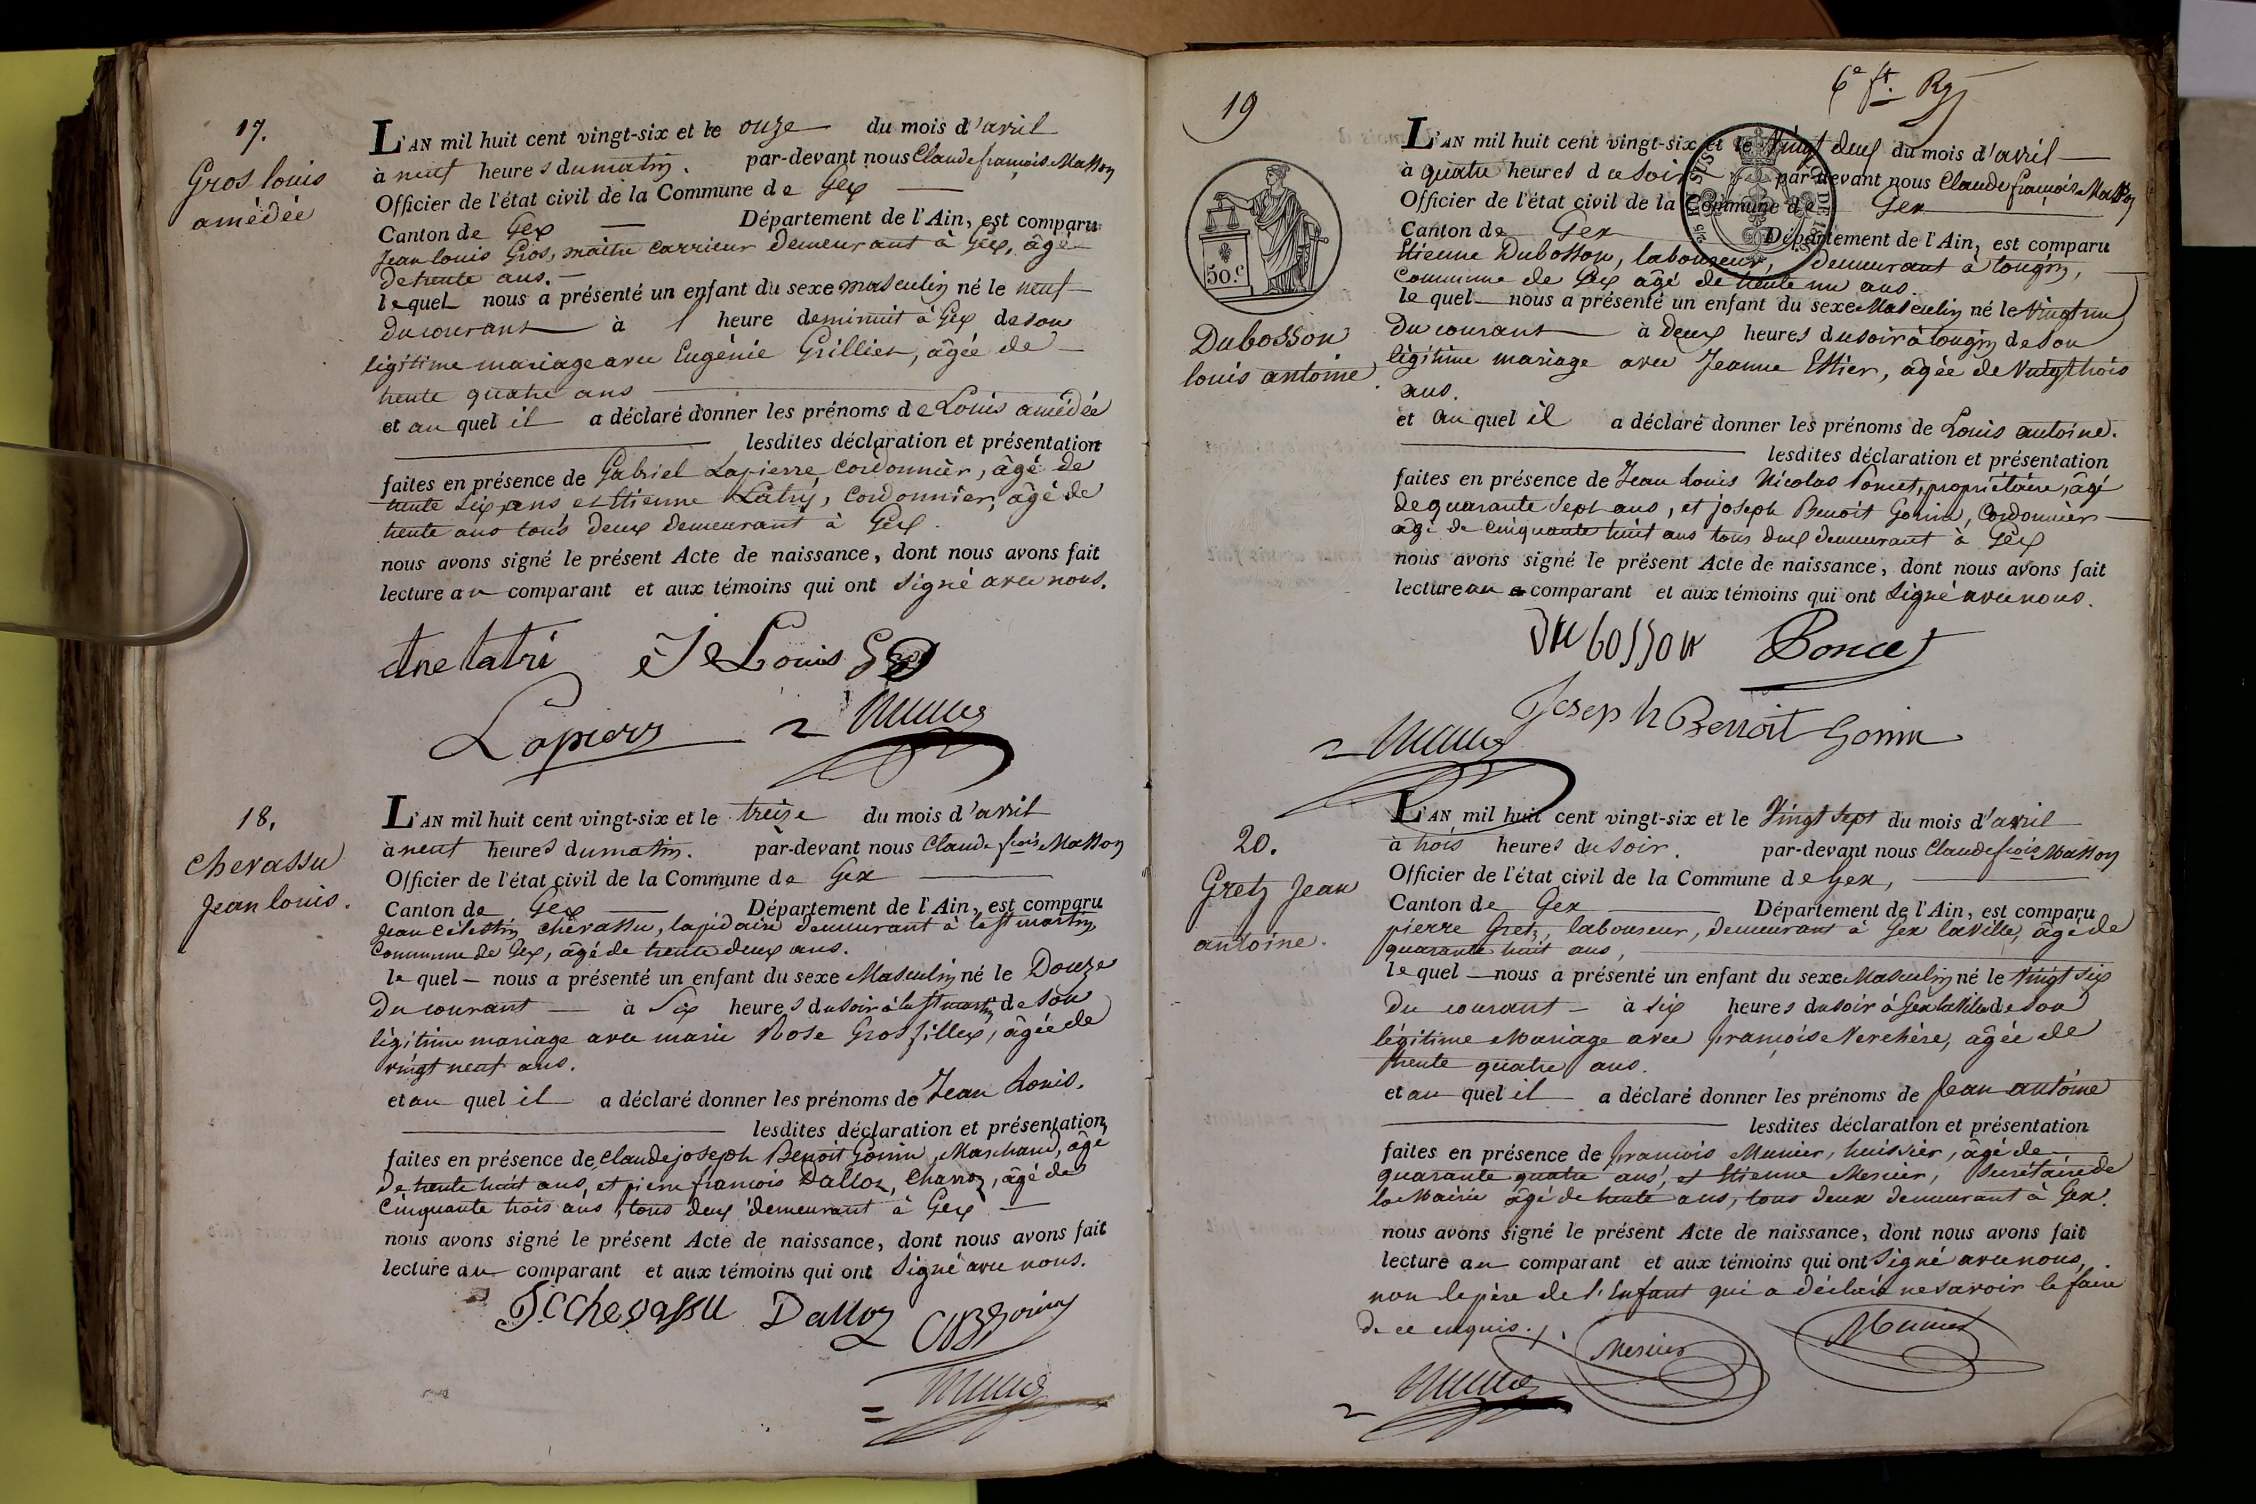 17.
Gros louis
amédée
L'AN mil huit cent vingt-six et le onze du mois d'avril
à neuf heures du matin. par-devant nous Claude françois Masson
Officier de l'état civil de la Commune de Gex
Canton de Gex Département de l'Ain, est comparu
Jean louis Gros, maitre carrieur demeurant à Gex, âgé
de trente ans.
lequel nous a présenté un enfant du sexe masculin né le neuf
du courant à l heure de minuit à Gex de son
légitime mariage avec Eugénie Grilliet, âgée de
trente quatre ans
et au quel il a déclaré donner les prénoms de Louis amédée
lesdites déclaration et présentation
faites en présence de Gabriel Lapierre, cordonnier, âgé de
trente six ans, et Etienne Latri, cordonnier, âgé de
trente ans tous deux demeurant à Gex.
nous avons signé le présent Acte de naissance, dont nous avons fait
lecture au comparant et aux témoins qui ont signé avec nous.
tne latri Je Louis
Lapierre
18.
chevassu
jean louis.
L'AN mil huit cent vingt-six et le treize du mois d'avril
à neuf heures du matin. par-devant nous Claude fcois Masson
Officier de l'état civil de la Commune de Gex
Canton de Gex Département de l'Ain, est comparu
Jean Célestin chevassu, lapidaire demeurant à le st martin
commune de Gex, âgé de trente deux ans.
le quel nous a présenté un enfant du sexe Masculin né le Douze
du courant à Six heures du soir à le st martin de son
légitime mariage avec marie Rose Grosfillex, âgée de
vingt neuf ans.
et au quel il a déclaré donner les prénoms de Jean Louis.
lesdites déclaration et présentation
faites en présence de Claude joseph Benoit Gonin, Marchand, âgé
de trente huit ans, et pierre françois Dalloz, âgé de
Cinquante trois ans, tous deux demeurant à Gex
nous avons signé le présent Acte de naissance, dont nous avons fait
lecture au comparant et aux témoins qui ont signé avec nous.
JC chevassu Dalloz CJBGonin
6e ft. Rg
19
50.c
Dubosson
louis antoine.
L'AN mil huit cent vingt-six et le Vingt deux du mois d'avril
à quatre heures de soir par-devant nous Claude françois Masson
Officier de l'état civil de la Commune de Gex
Canton de Gex Département de l'Ain, est comparu
Etienne Dubosson, laboureur, demeurant à tougin,
commune de Gex âgé de trente un ans.
le quel nous a présenté un enfant du sexe Masculin né le Vingt un
du courant à deux heures du soir à tougin de son
légitime mariage avec Jeanne Ettier, âgée de Vingt trois
ans.
et au quel il a déclaré donner les prénoms de Louis antoine.
lesdites déclaration et présentation
faites en présence de Jean Louis Nicolas Poncet, propriétaire, âgé
de quarante sept ans, et joseph Benoit Gonin, Cordonnier
âgé de cinquante huit ans tous deux demeurant à Gex
nous avons signé le présent Acte de naissance, dont nous avons fait
lecture au comparant et aux témoins qui ont signé avec nous.
Dubosson Poncet
Joseph Benoit Gonin
20.
Gretz Jean
antoine.
L'AN mil huit cent vingt-six et le Vingt Sept du mois d'avril
à trois heures du soir. par-devant nous Claude fcois Masson
Officier de l'état civil de la Commune de Gex,
Canton de Gex Département de l'Ain, est comparu
pierre Gretz, laboureur, demeurant à Gex la Ville, âgé de
quarante huit ans,
lequel nous a présenté un enfant du sexe Masculin né le Vingt six
du courant à six heures du soir à Gex la Ville de son
légitime Mariage avec françoise Verchère, âgée de
trente quatre ans.
et au quel il a déclaré donner les prénoms de Jean antoine
lesdites déclaration et présentation
faites en présence de françois Munier, huissier, âgé de
quarante quatre ans, et Etienne Mercier, Secrétaire de
la Mairie âgé de trente ans, tous deux demeurant à Gex.
nous avons signé le présent Acte de naissance, dont nous avons fait
lecture au comparant et aux témoins qui ont Signé avec nous,
non le père de l'Enfant qui a déclaré ne savoir le faire
de ce enquis.
Mercier Munier